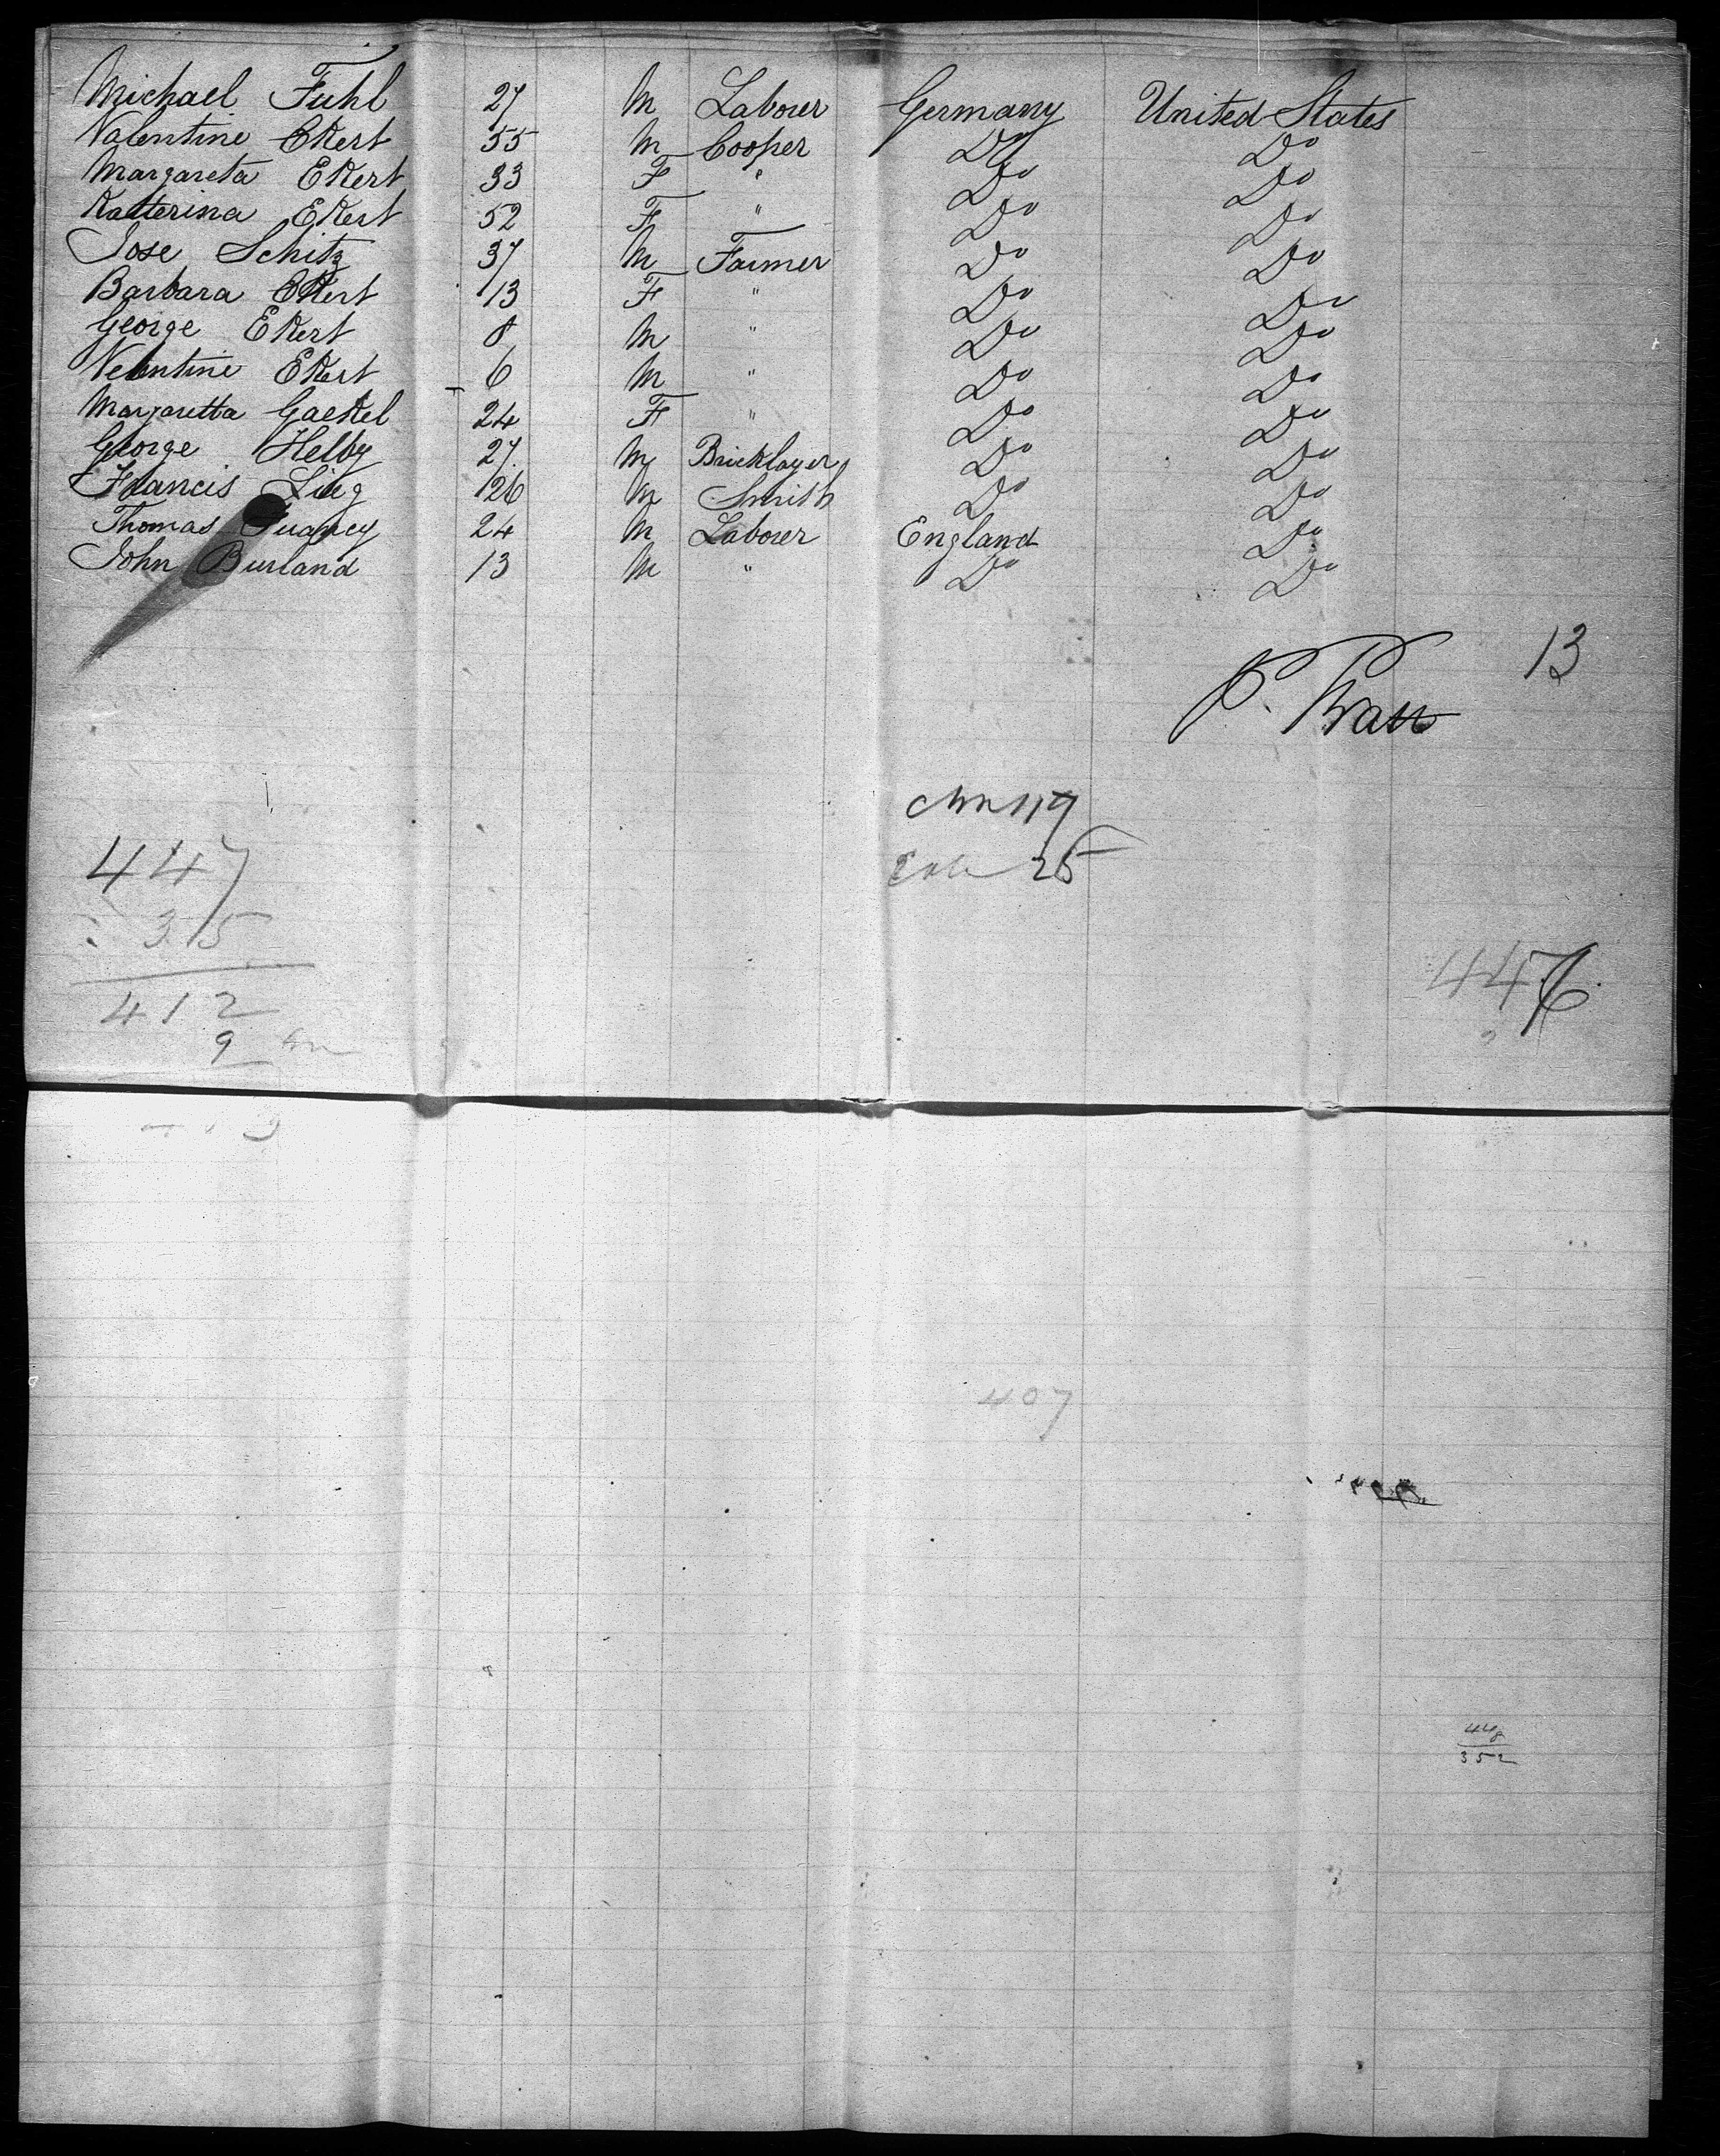 Michael Fuhl 27 M Labourer Germany United States
Valentine Ekert 55 M Cooper Do Do
Margareta Ekert 33 F " Do Do
Katterina Ekert 52 F " Do Do
Jose Schitz 37 M Farmer Do Do
Barbara Ekert 13 F " Do Do
George Ekert 8 M " Do Do
Velentine Ekert 6 M " Do Do
Margaretta Gaekel 24 F " Do Do
George Helby 27 M Bricklayer Do Do
Francis 26 M Smith Do Do
Thomas 24 M Labourer England Do
John Burland 13 M " Do Do
13
P. Pratt
119
25
447
35
412
9
447
407
448
352